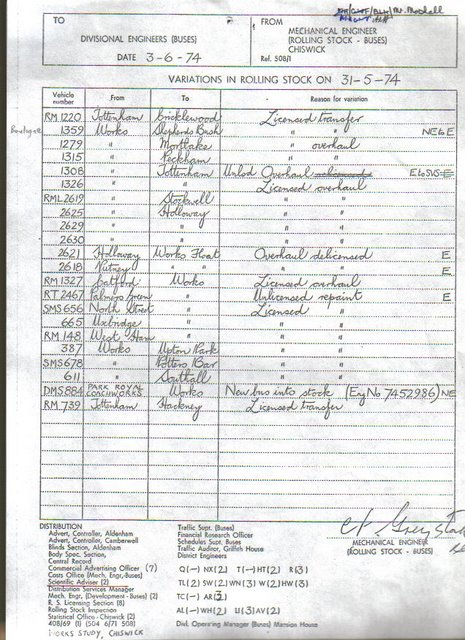 TO
FROM
DIVISIONAL ENGINEERS (BUSES)
MECHANICAL ENGINEER
(ROLLING STOCK - BUSES)
CHISWICK
DATE 3-6-74
Ref. 508/1
VARIATIONS IN ROLLING STOCK ON 31-5-74
Vehicle number From To Reason for variation
RM 1220 Tottenham Cricklewood Licensed transfer
1359 Works Shepherds Bush " " NE6E
1279 " Mortlake " overhaul
1315 " Peckham " "
1308 " Tottenham Unlsd Overhaul
1326 " " Licensed overhaul
RML 2619 " Stockwell " "
2625 " Holloway " "
2629 " " " "
2630 " " " "
2621 Holloway Works Float Overhaul delicensed E
2618 Putney " " " " E
RM 1327 Catford Works Licensed overhaul
RT 2467 Palmers Green " Unlicensed repaint E
SMS 656 North Street " Licensed "
665 Uxbridge " " "
RM 148 West Ham " " "
387 Works Upton Park " "
SMS 678 " Potters Bar " "
611 " Southall " "
DMS 884 PARK ROYAL COACHWORKS Works New bus into stock (Eng No 7452986) NE
RM 739 Tottenham Hackney Licensed transfer
MECHANICAL ENGINEER
(ROLLING STOCK - BUSES)
DISTRIBUTION
Advert. Controller, Aldenham
Advert. Controller, Camberwell
Blinds Section, Aldenham
Body Spec. Section,
Central Record
Commercial Advertising Officer (7)
Costs Office (Mech. Engr.-Buses)
Scientific Adviser (2)
Distribution Services Manager
Mech. Engr. (Development - Buses) (2)
R. S. Licensing Section (8)
Rolling Stock Inspection
Statistical Office - Chiswick (2)
408/69 (1) (504 6/71 508)
WORKS STUDY, CHISWICK
Traffic Supt. (Buses)
Financial Research Officer
Schedules Supt. Buses
Traffic Auditor, Griffith House
District Engineers
Q(-) NX(2) T(-) HT(2) R(3)
TL(2) SW(2) WN(3) W(2) HW(3)
TC(-) AR(3)
AL(-) WH(2) U(3) AV(2)
Divl. Operating Manager (Buses) Mansion House